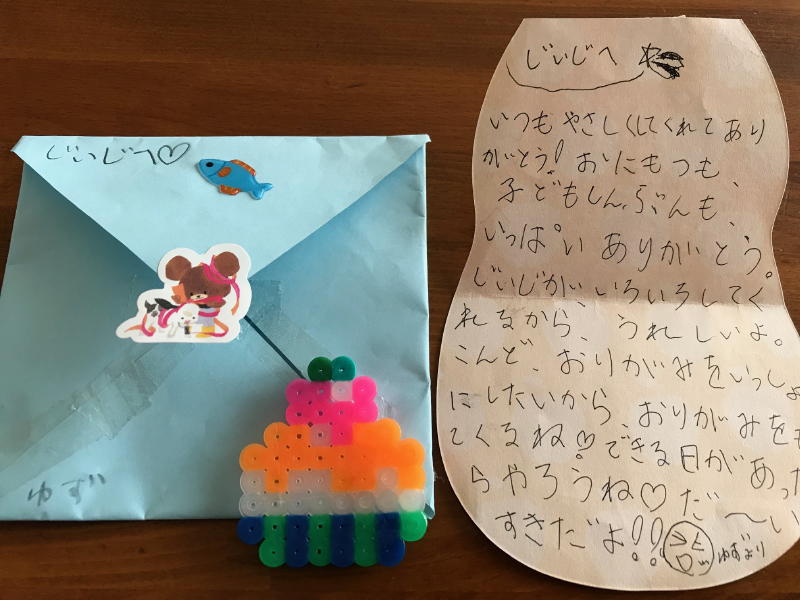 じいじへ♡
ゆず
じいじへ
いつもやさしくしてくれてあり
がとう!おにもつも、
子どもしんぶんも、
いっぱいありがとう。
じいじが、いろいろしてく
れるから、うれしいよ。
こんど、おりがみをいっしょ
にしたいから、おりがみをも
てくるね♡できる日があった
らやろうね♡だ〜い
すきだよ!!
ゆずより